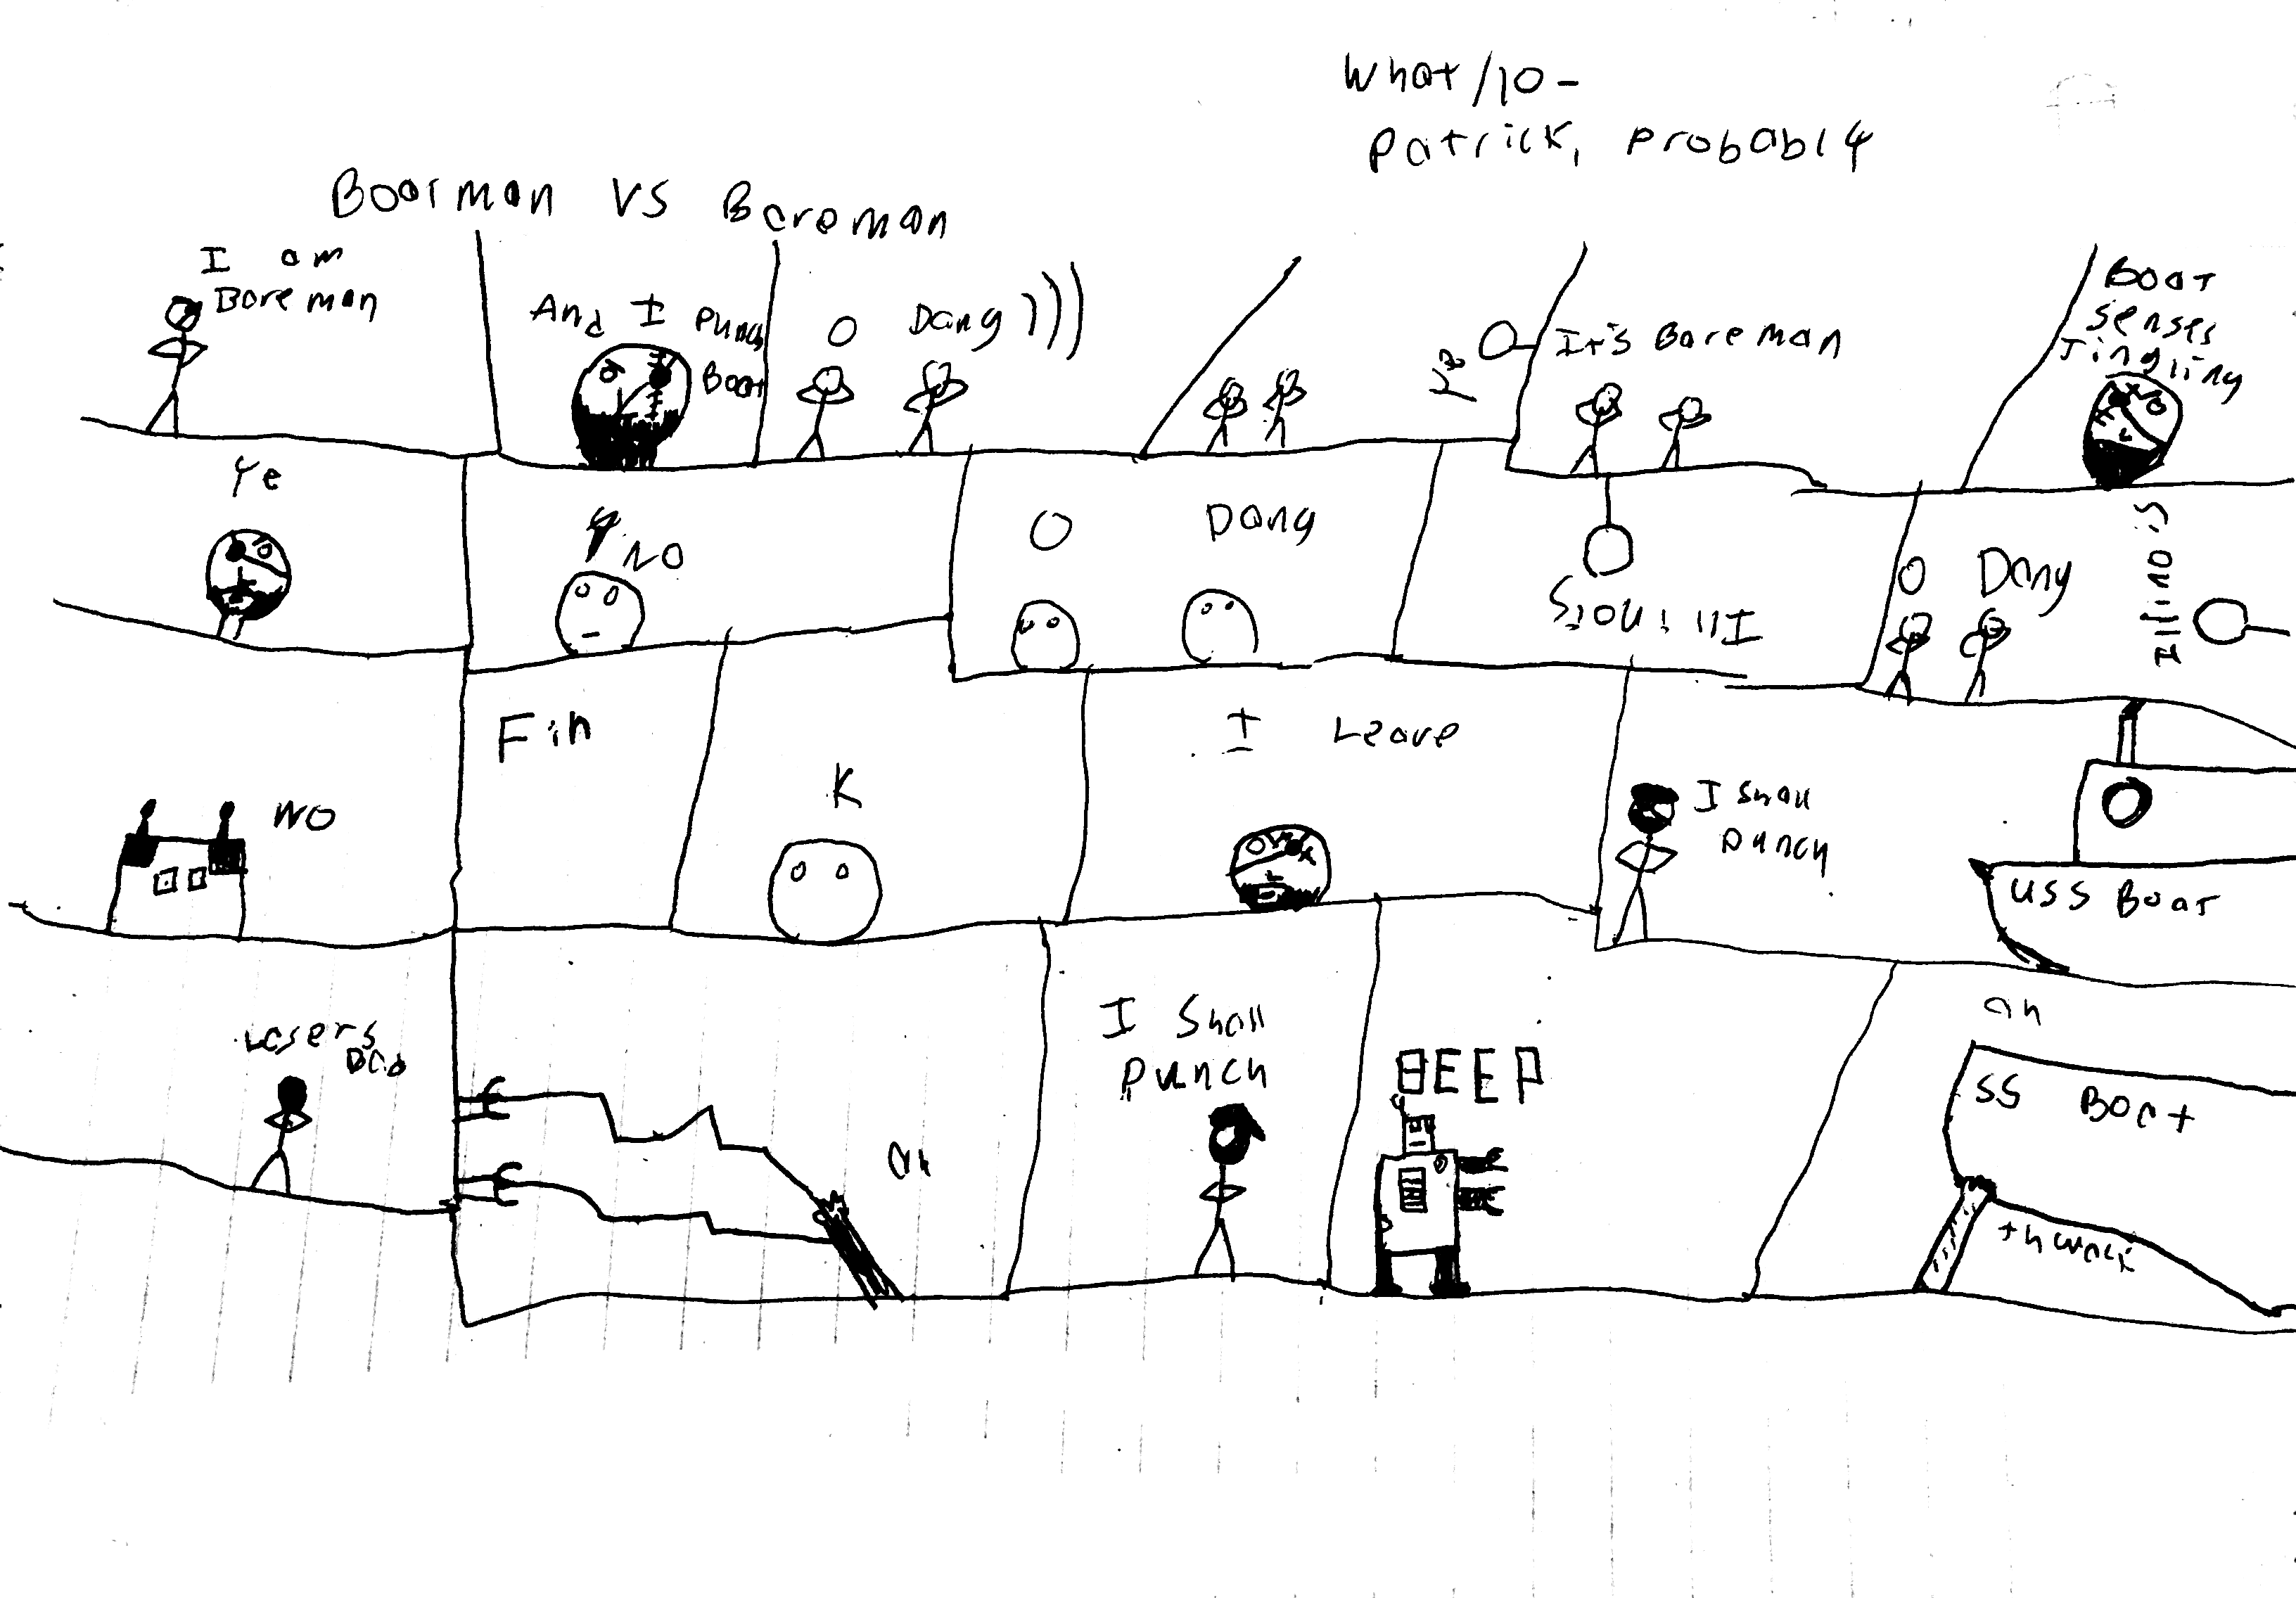 What/10-
Patrick, Probably
Boatman VS Bareman
I am
Bareman
And I Punch
Boat
O Dang
Yo
It's Bareman
Boat
senses
Tingling
Ye
NO
O Dang
Illinois
O Dang
Illinois
NO
Fin
K
I Leave
I shall
punch
USS Boat
Lasers
Bad
ah
I Shall
Punch
BEEP
ah
SS Boat
thwack